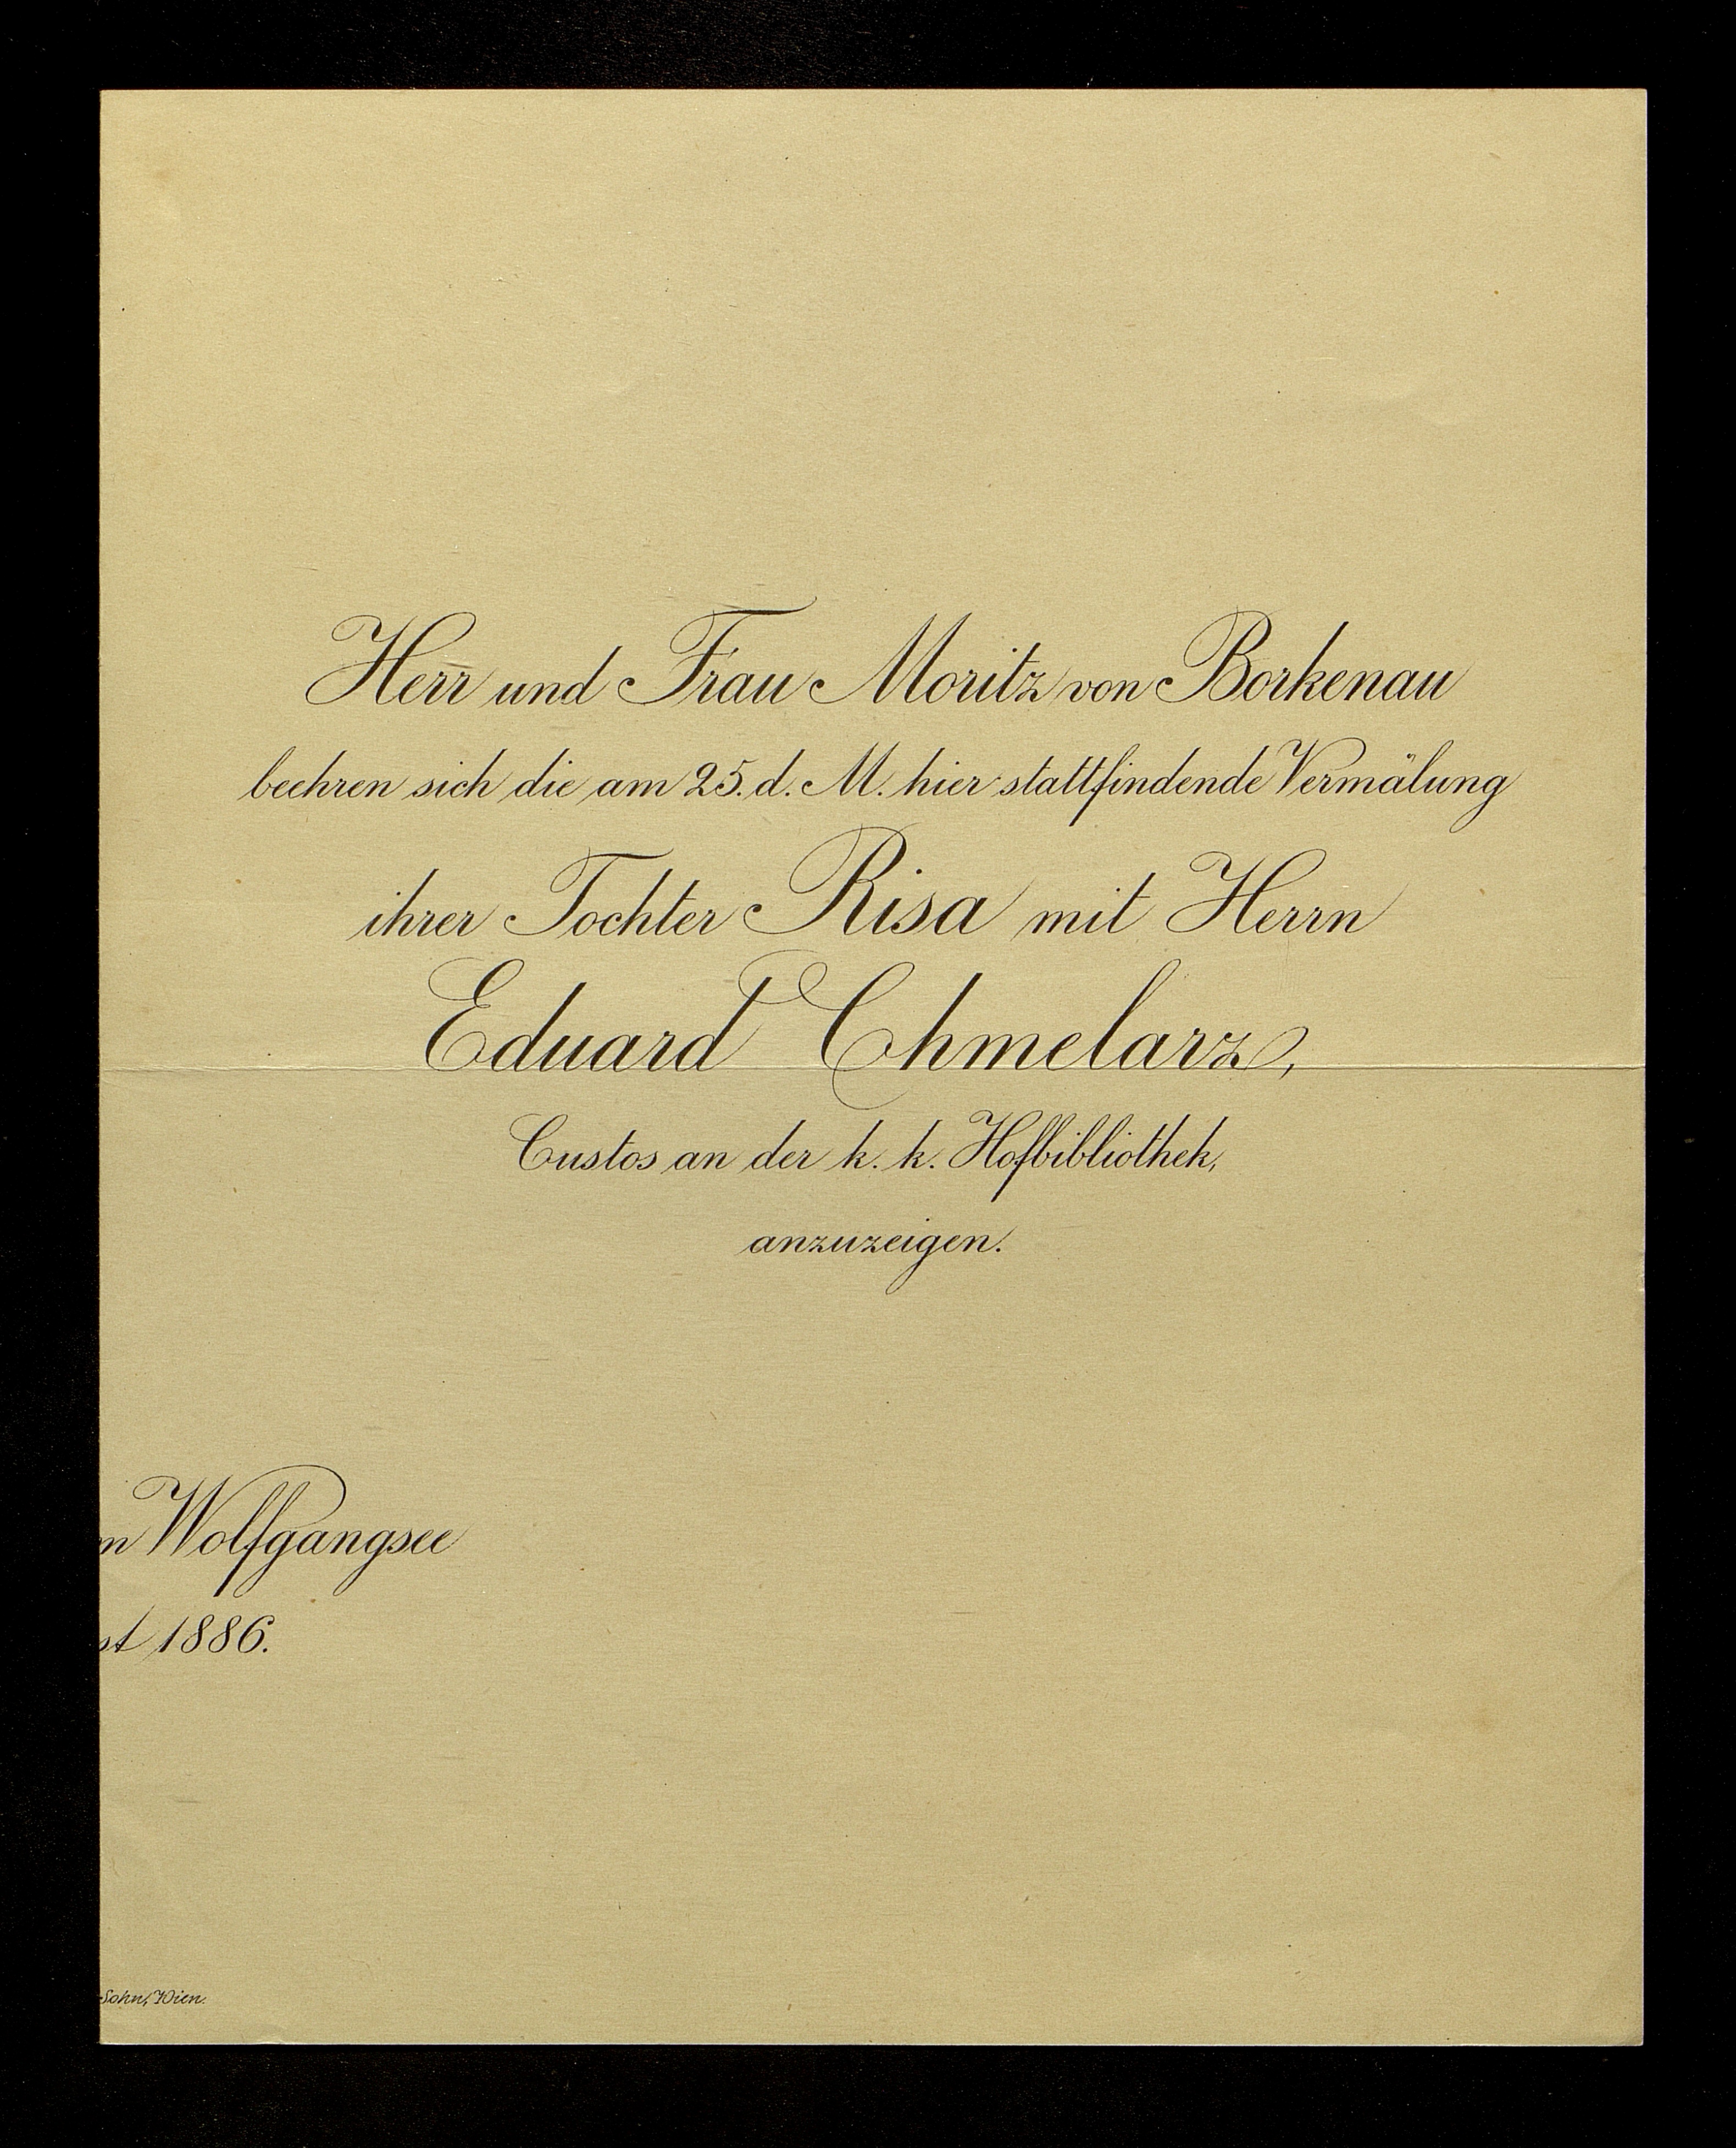 Herr und Frau Moritz von Borkenau
beehren sich die am 25. d. M. hier stattfindende Vermälung
ihrer Tochter Risa mit Herrn
Eduard Chmelarz,
Custos an der k. k. Hofbibliothek,
anzuzeigen.
Wolfgangsee
st 1886.
Sohn, Wien.